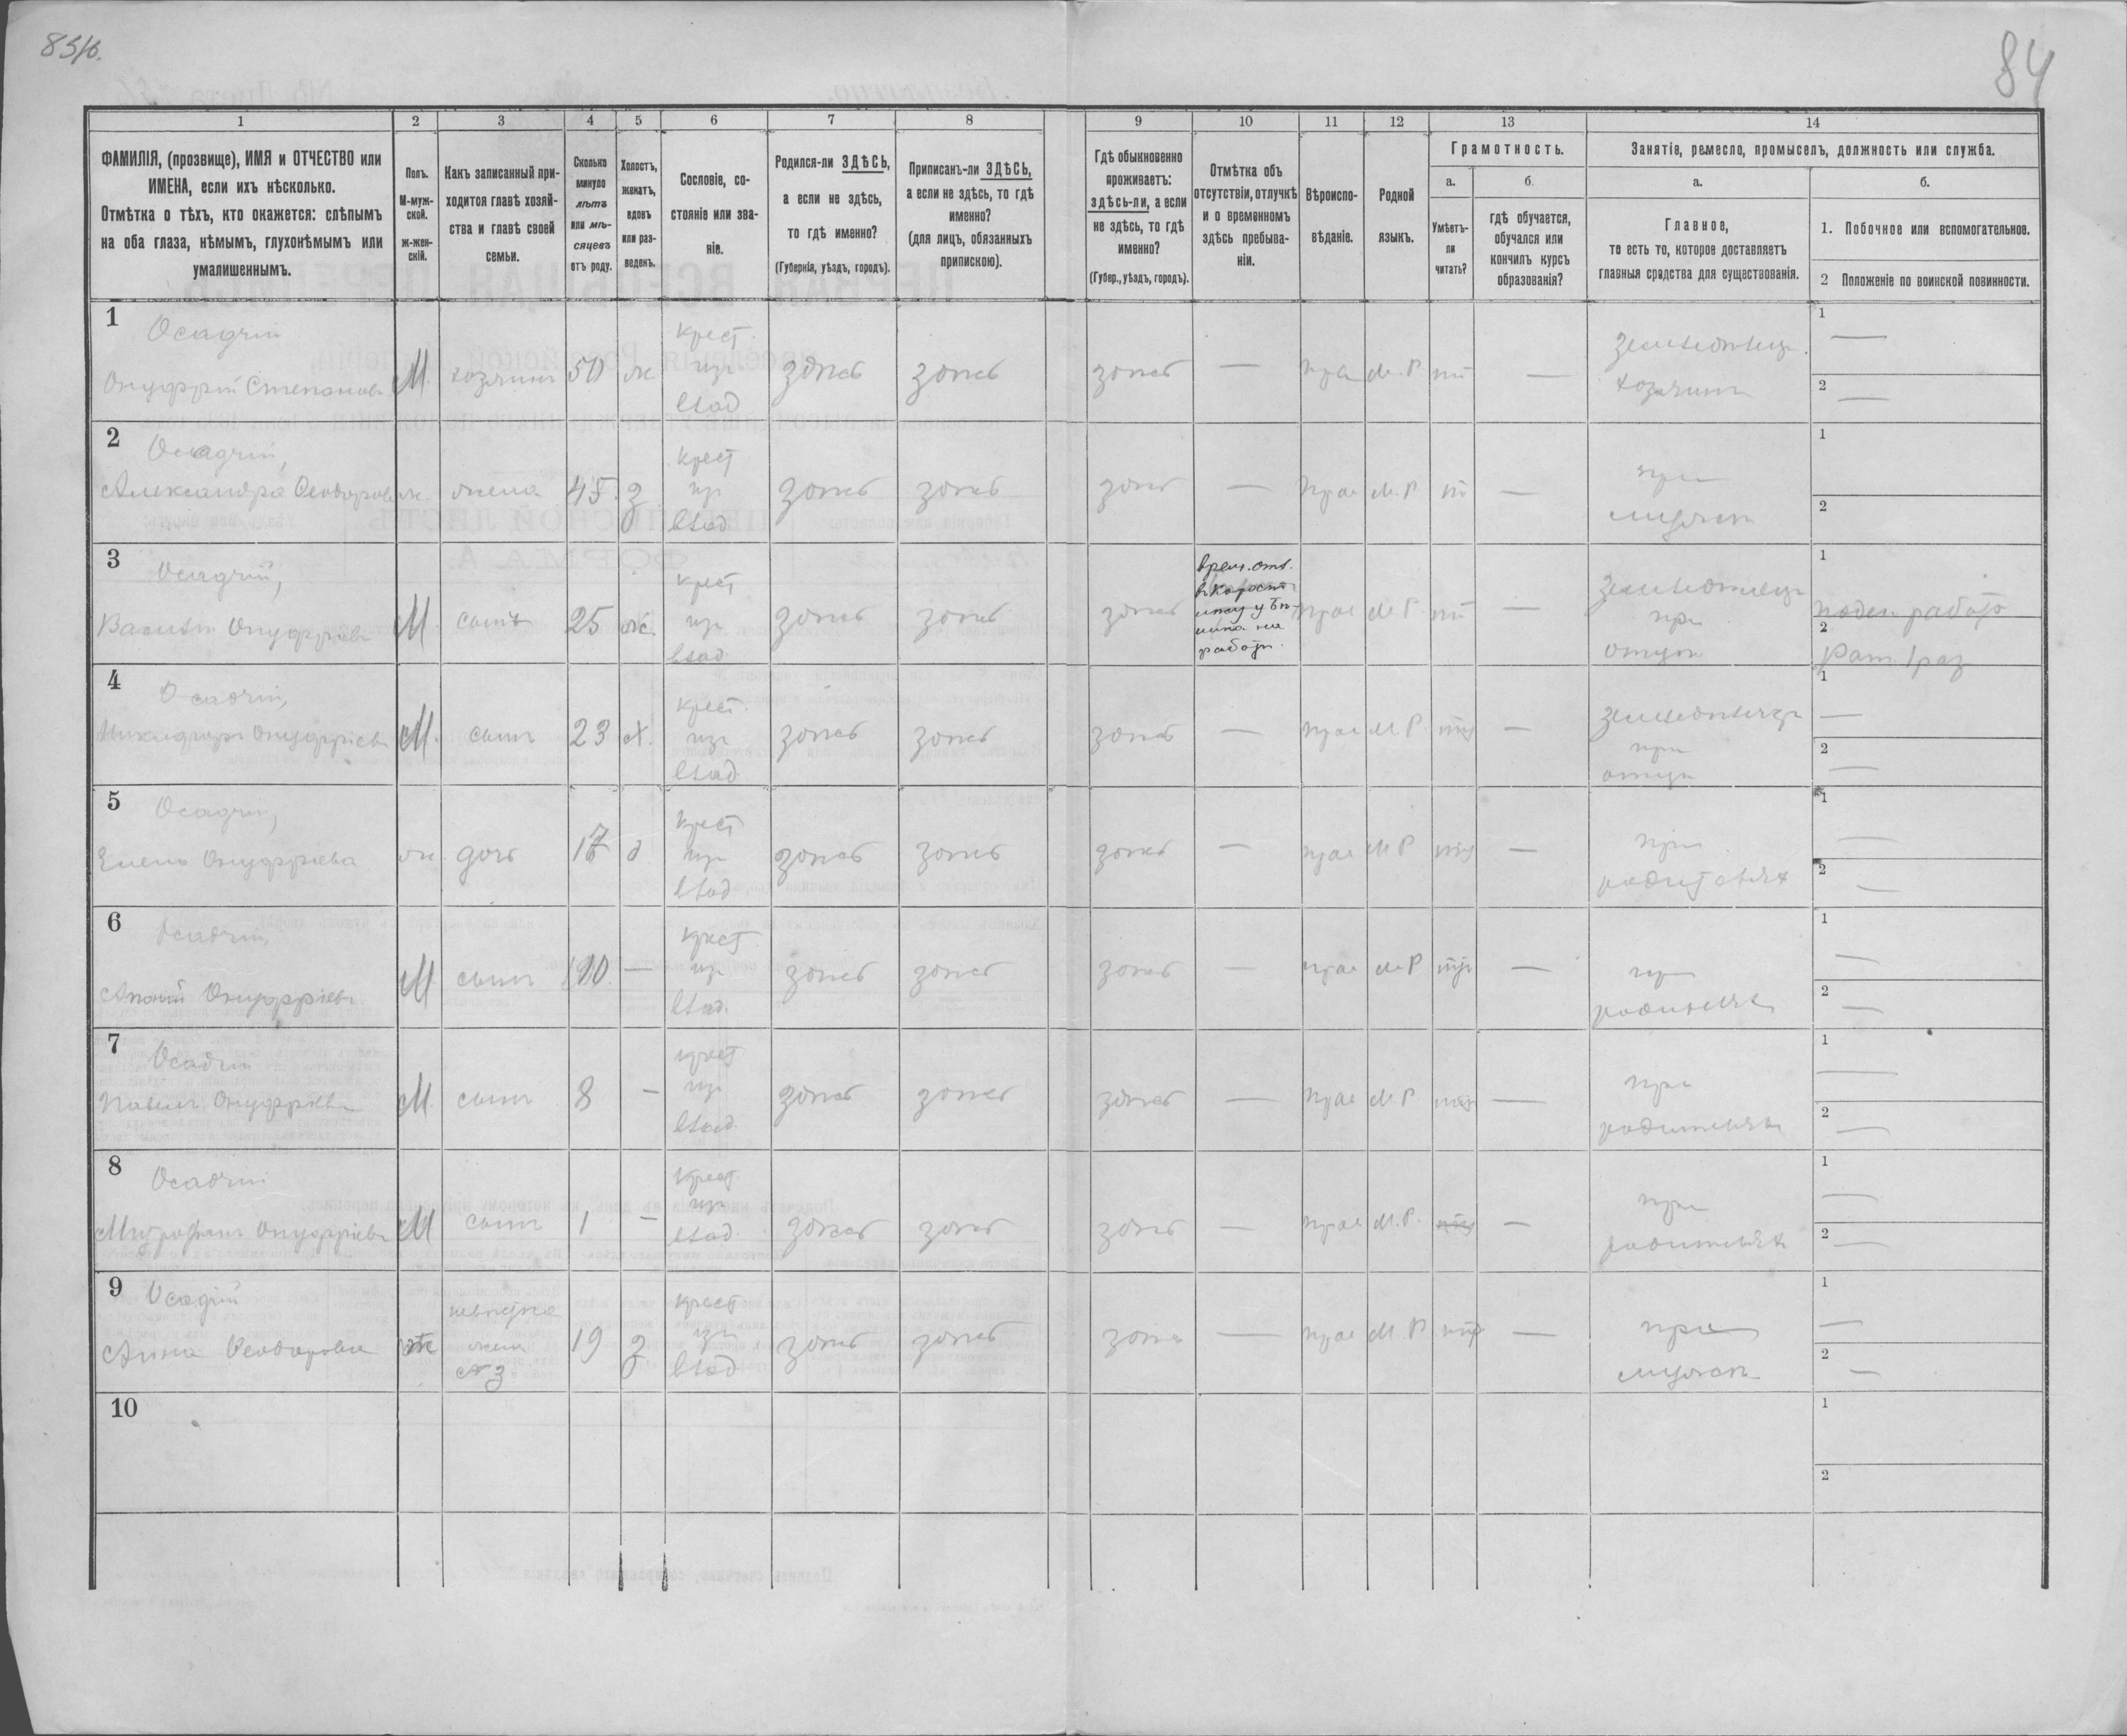 84
1
2
3
4
5
6
7
8
9
10
11
12
13
14
ФАМИЛІЯ, (прозвище), ИМЯ и ОТЧЕСТВО или
ИМЕНА, если ихъ нѣсколько.
Отмѣтка о тѣхъ, кто окажется: слѣпымъ
на оба глаза, нѣмымъ, глухонѣмымъ или
умалишеннымъ.
Полъ.
М-муж-
ской.
ж-жен-
скій.
Какъ записанный при-
ходится главѣ хозяй-
ства и главѣ своей
семьи.
Сколько
минуло
лѣтъ
или мѣ-
сяцевъ
отъ роду.
Холостъ,
женатъ,
вдовъ
или раз-
веденъ.
Сословіе, со-
стояніе или зва-
ніе.
Родился-ли ЗДѢСЬ,
а если не здѣсь,
то гдѣ именно?
(Губернія, уѣздъ, городъ).
Приписанъ-ли ЗДѢСЬ,
а если не здѣсь, то гдѣ
именно?
(для лицъ, обязанныхъ
припискою).
Гдѣ обыкновенно
проживаетъ:
здѣсь-ли, а если
не здѣсь, то гдѣ
именно?
(Губер., уѣздъ, городъ).
Отмѣтка объ
отсутствіи, отлучкѣ
и о временномъ
здѣсь пребыва-
ніи.
Вѣроиспо-
вѣданіе.
Родной
языкъ.
Грамотность.
а.
Умѣетъ-
ли
читать?
б.
гдѣ обучается,
обучался или
кончилъ курсъ
образованія?
Занятіе, ремесло, промыселъ, должность или служба.
а.
Главное,
то есть то, которое доставляетъ
главныя средства для существованія.
б.
1. Побочное или вспомогательное.
2 Положеніе по воинской повинности.
1
Осадчій
Онуфрій Степановъ
М.
хозяинъ
50
ж
крест
изъ
влад
здѣсь
здѣсь
здѣсь
—
М. Р.
—
хозяинъ
1 —
2 —
2
Осадчій,
Александра Феодорова
ж.
жена
45
з
крест
изъ
влад
здѣсь
здѣсь
здѣсь
—
прав
М. Р.
—
при
мужѣ
1
2
3
Осадчій,
Онуфріевъ
М.
сынъ
25
ж.
крест
изъ
влад
здѣсь
здѣсь
здѣсь
врем. отс.
работѣ.
прав
М. Р.
—
при
отцѣ
1
поден работа
2
Рат. 1 раз
4
Осадчій,
Никандръ Онуфріевъ
М.
сынъ
23
х.
крест.
изъ
влад
здѣсь
здѣсь
здѣсь
—
прав
М. Р.
—
при
отцѣ
1 —
2 —
5
Осадчій,
Елена Онуфріева
ж.
дочь
17
д
крест
изъ
влад
здѣсь
здѣсь
здѣсь
—
прав
М Р
—
при
родителях
1 —
2 —
6
Осадчій,
Онуфріевъ
М
сынъ
10
—
крест
изъ
влад.
здѣсь
здѣсь
здѣсь
—
прав
М Р
—
при
родителях
1 —
2 —
7
Осадчій
Павелъ Онуфріевъ
М
сынъ
8
—
крест
изъ
влад
здѣсь
здѣсь
здѣсь
—
прав
М. Р.
—
при
родителях
1 —
2 —
8
Осадчій
Митрофанъ Онуфріевъ
М
сынъ
1
—
крест
изъ
влад
здѣсь
здѣсь
здѣсь
—
прав
М. Р.
—
при
родителях
1 —
2 —
9
Осадчій
Анна Феодорова
ж
невѣстка
жена
№ 3
19
з
крест
изъ
влад
здѣсь
здѣсь
здѣсь
—
прав
М. Р
—
при
мужѣ
1 —
2 —
10
1
2